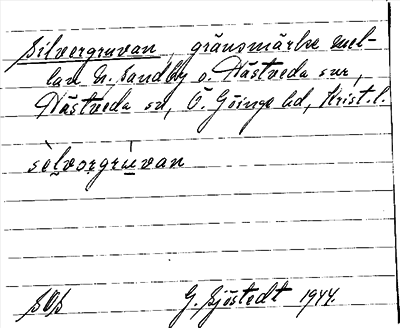 Silvergruvan, gränsmärke mel-
lan N. Sandby o. Hästveda snr,
Hästveda sn, Ö. Göinge hd, Krist. l.
sèlvorgrūvan
G. Sjöstedt 1944